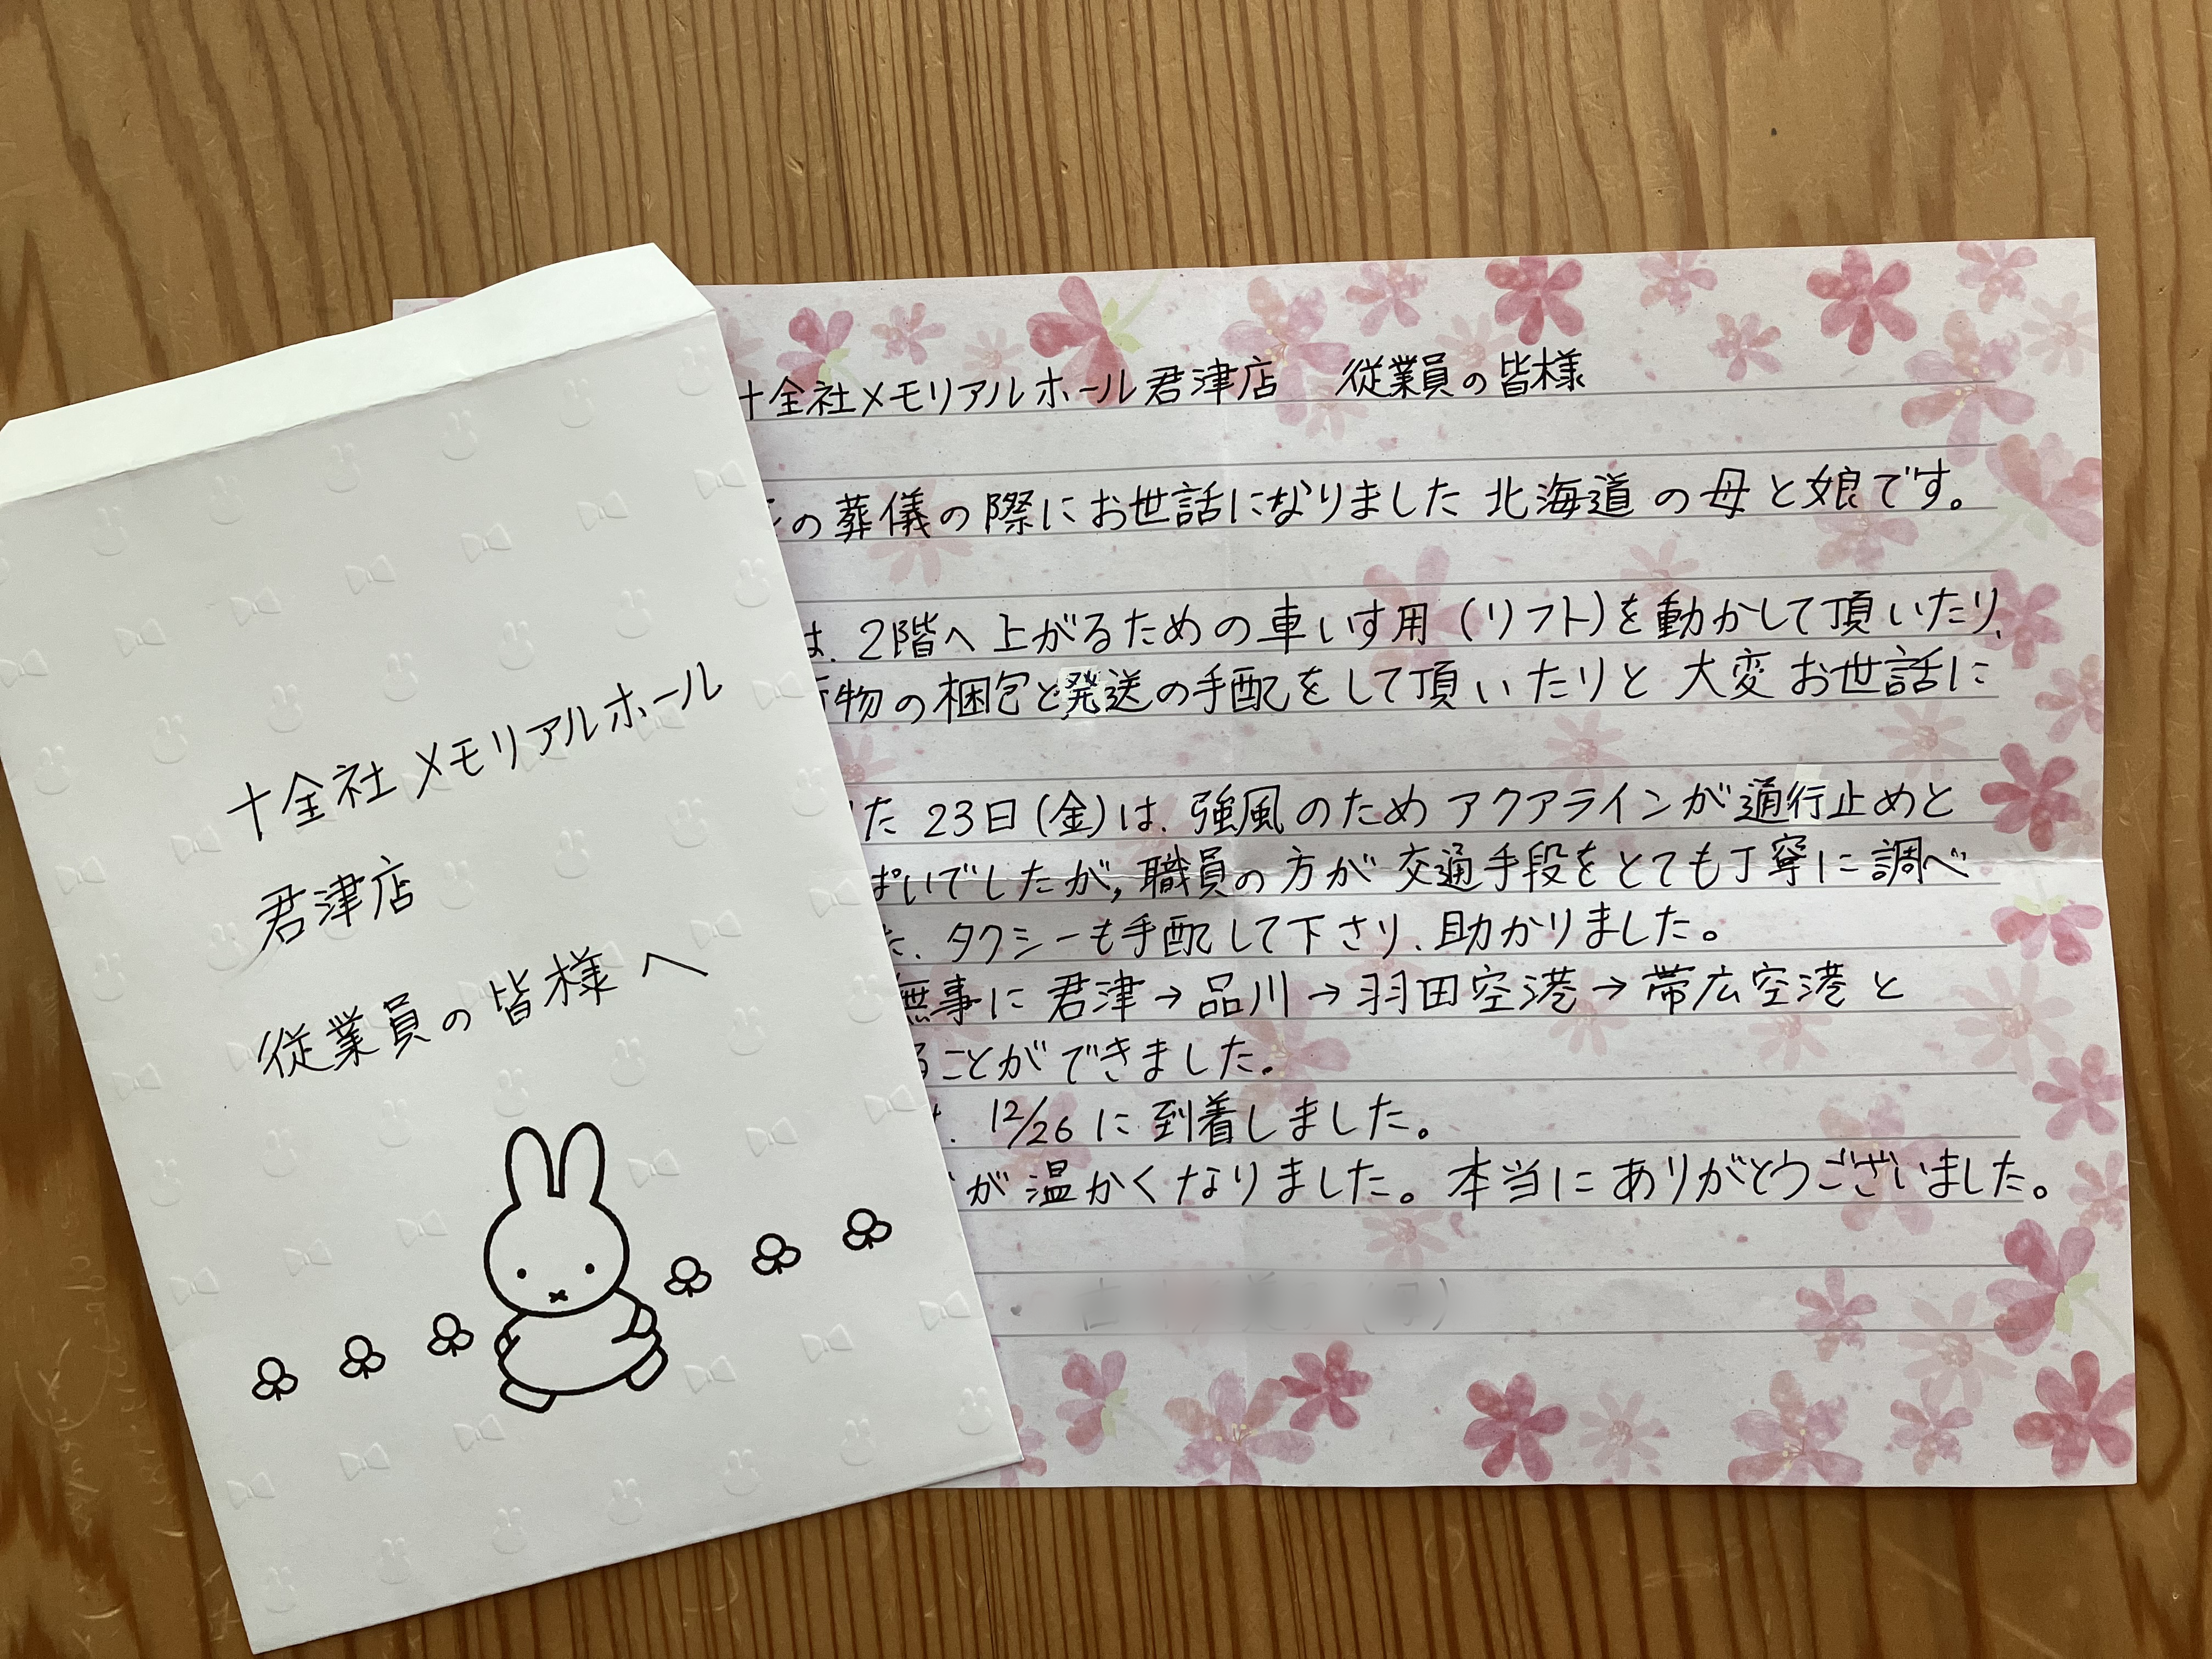 十全社メモリアルホール
君津店
従業員の皆様へ
十全社メモリアルホール君津店 従業員の皆様
の葬儀の際にお世話になりました北海道の母と娘です。
は、2階へ上がるための車いす用(リフト)を動かして頂いたり、
物の梱包と発送の手配をして頂いたりと大変お世話に
た23日(金)は、強風のためアクアラインが通行止めと
ぱいでしたが、職員の方が交通手段をとても丁寧に調べ
た、タクシーも手配して下さり、助かりました。
無事に君津→品川→羽田空港→帯広空港と
ることができました。
12/26に到着しました。
が温かくなりました。本当にありがとうございました。